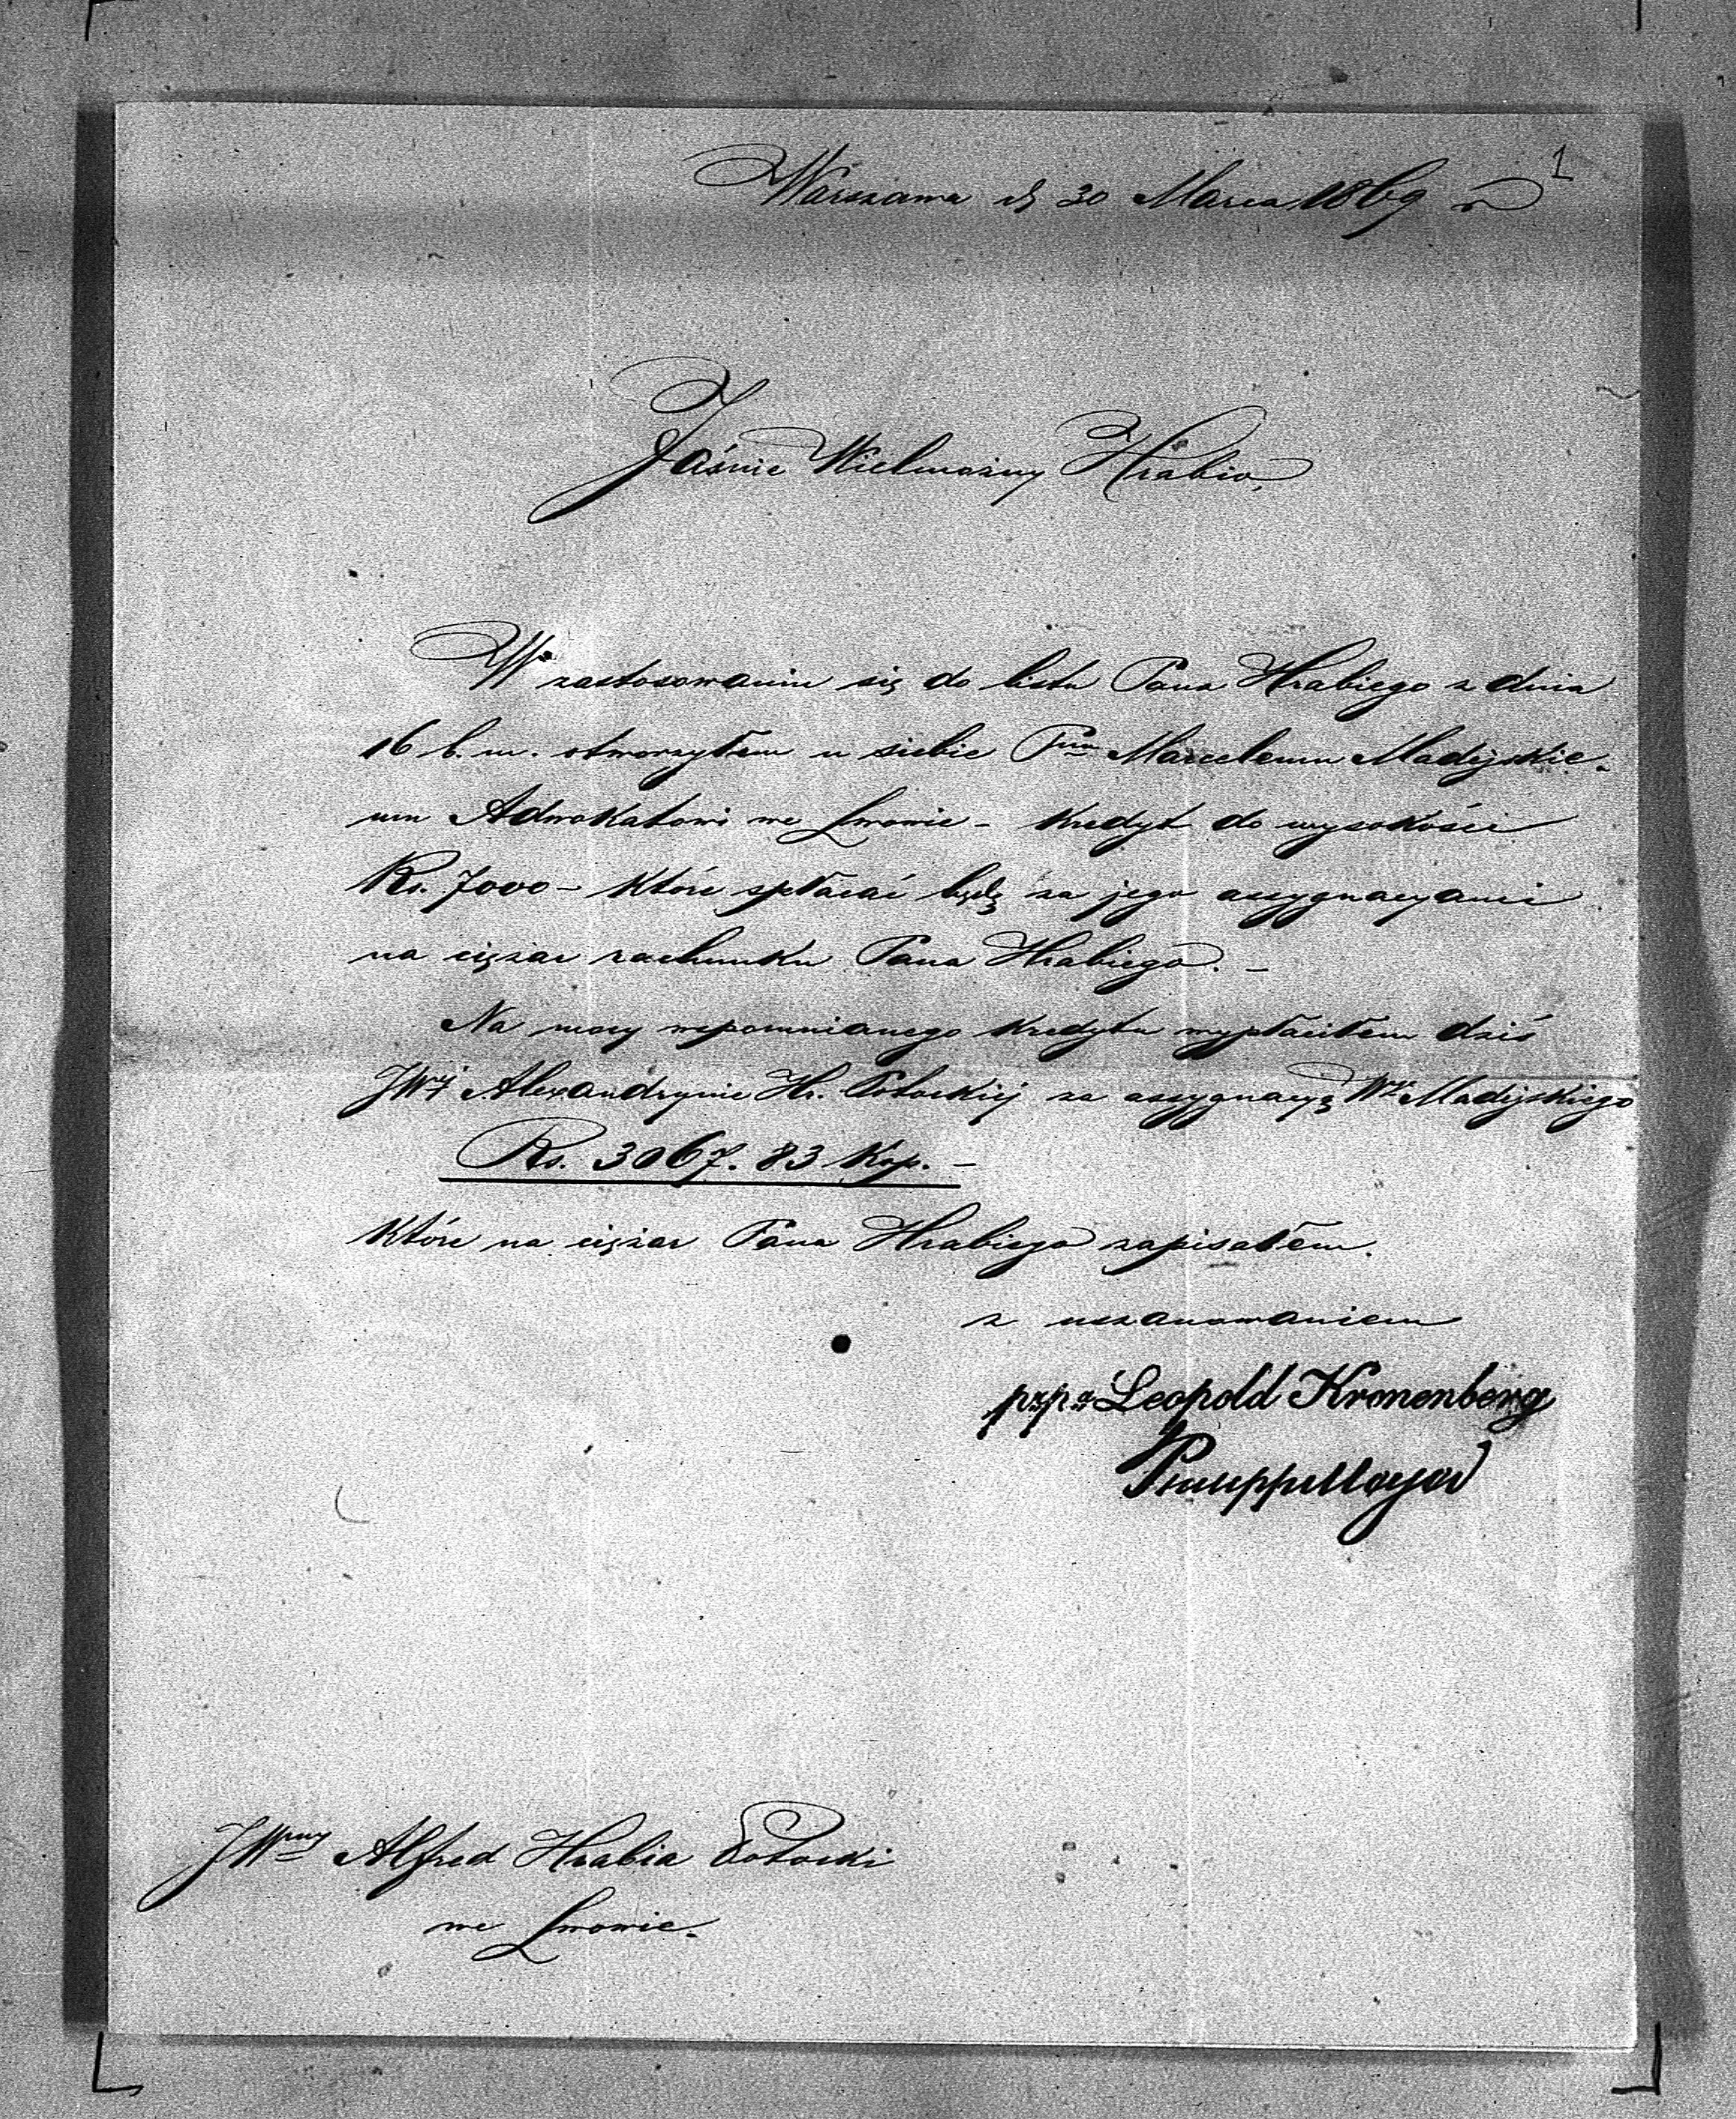 1
Warszawa d 30 Marca 1869 r
Jaśnie Wielmożny Hrabio,
W zastosowaniu się do listu Pana Hrabiego z dnia
16 b.m. otworzyłem u siebie Pnu Marcelemu Madejskie-
mu Adwokatowi we Lwowie - kredyt do wysokości
Rs. 7000 - które spłacać będę za jego assygnacyami
na ciężar rachunku Pana Hrabiego. -
Na mocy wspomnianego kredytu wypłaciłem dziś
JWej Alexandrynie Hr. Potockiej za assygnacyą Wgo Madejskiego
Rs. 3067. 83 Kop. -
które na ciężar Pana Hrabiego zapisałem.
z uszanowaniem
Leopold Kronenberg
JWny Alfred Hrabia Potocki
we Lwowie.